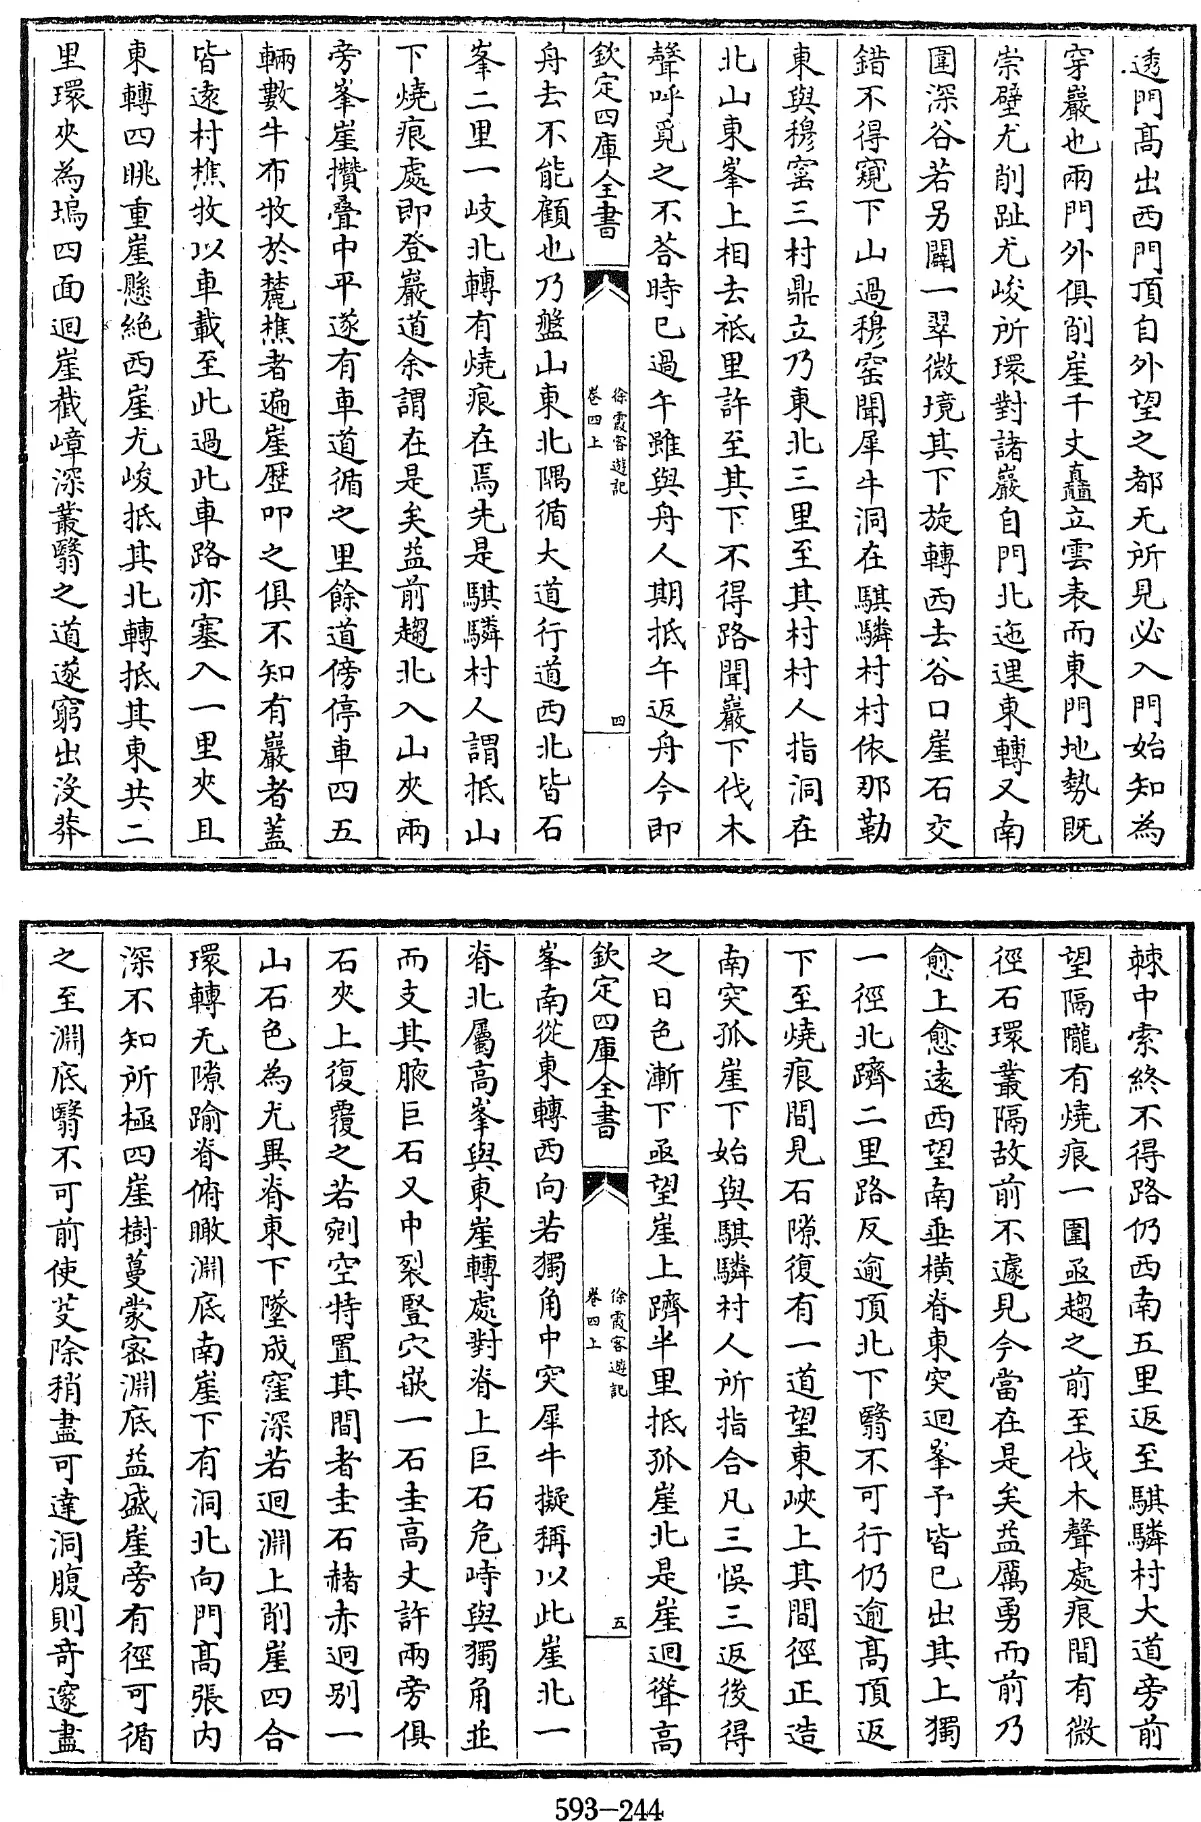 透門髙出西門頂自外望之都无所見必入門始知為
穿巖也兩門外俱削崖千丈矗立雲表而東門地勢既
崇壁尤削趾尤峻所環對諸巖自門北迤逕東轉又南
圍深谷若另闢一翠微境其下旋轉西去谷口崖石交
錯不得窺下山過穆窑聞犀牛洞在騏驎村村依那勒
東與穆窑三村鼎立乃東北三里至其村村人指洞在
北山東峯上相去祗里許至其下不得路聞巖下伐木
聲呼覓之不荅時已過午雖與舟人期抵午返舟今即
欽定四庫全書
徐霞客遊記
卷四上
四
舟去不能顧也乃盤山東北隅循大道行道西北皆石
峯二里一岐北轉有燒痕在焉先是騏驎村人謂抵山
下燒痕處即登巖道余謂在是矣益前趨北入山夾兩
旁峯崖攢疊中平遂有車道循之里餘道傍停車四五
輛數牛布牧於麓樵者遍崖歴叩之俱不知有巖者蓋
皆逺村樵牧以車載至此過此車路亦塞入一里夾且
東轉四眺重崖懸絶西崖尤峻抵其北轉抵其東共二
里環夾為塢四面迴崖截嶂深叢翳之道遂窮出沒莽
棘中索終不得路仍西南五里返至騏驎村大道旁前
望隔隴有燒痕一圍亟趨之前至伐木聲處痕間有微
徑石環叢隔故前不遽見今當在是矣益厲勇而前乃
愈上愈逺西望南垂横脊東突迴峯予皆已出其上獨
一徑北躋二里路反逾頂北下翳不可行仍逾髙頂返
下至燒痕間見石隙復有一道望東峽上其間徑正造
南突孤崖下始與騏驎村人所指合凡三悞三返後得
之日色漸下亟望崖上躋半里抵孤崖北是崖迴聳高
欽定四庫全書
徐霞客遊記
卷四上
五
峯南從東轉西向若獨角中突犀牛擬稱以此崖北一
脊北屬高峯與東崖轉處對脊上巨石危峙與獨角並
而支其腋巨石又中裂豎穴嵌一石圭高丈許兩旁俱
石夾上復覆之若剜空特置其間者圭石赭赤迥别一
山石色為尤異脊東下墜成窪深若迴淵上削崖四合
環轉无隙踰脊俯瞰淵底南崖下有洞北向門髙張内
深不知所極四崖樹蔓蒙宻淵底益盛崖旁有徑可循
之至淵底翳不可前使芟除稍盡可達洞腹則竒邃盡
593-244